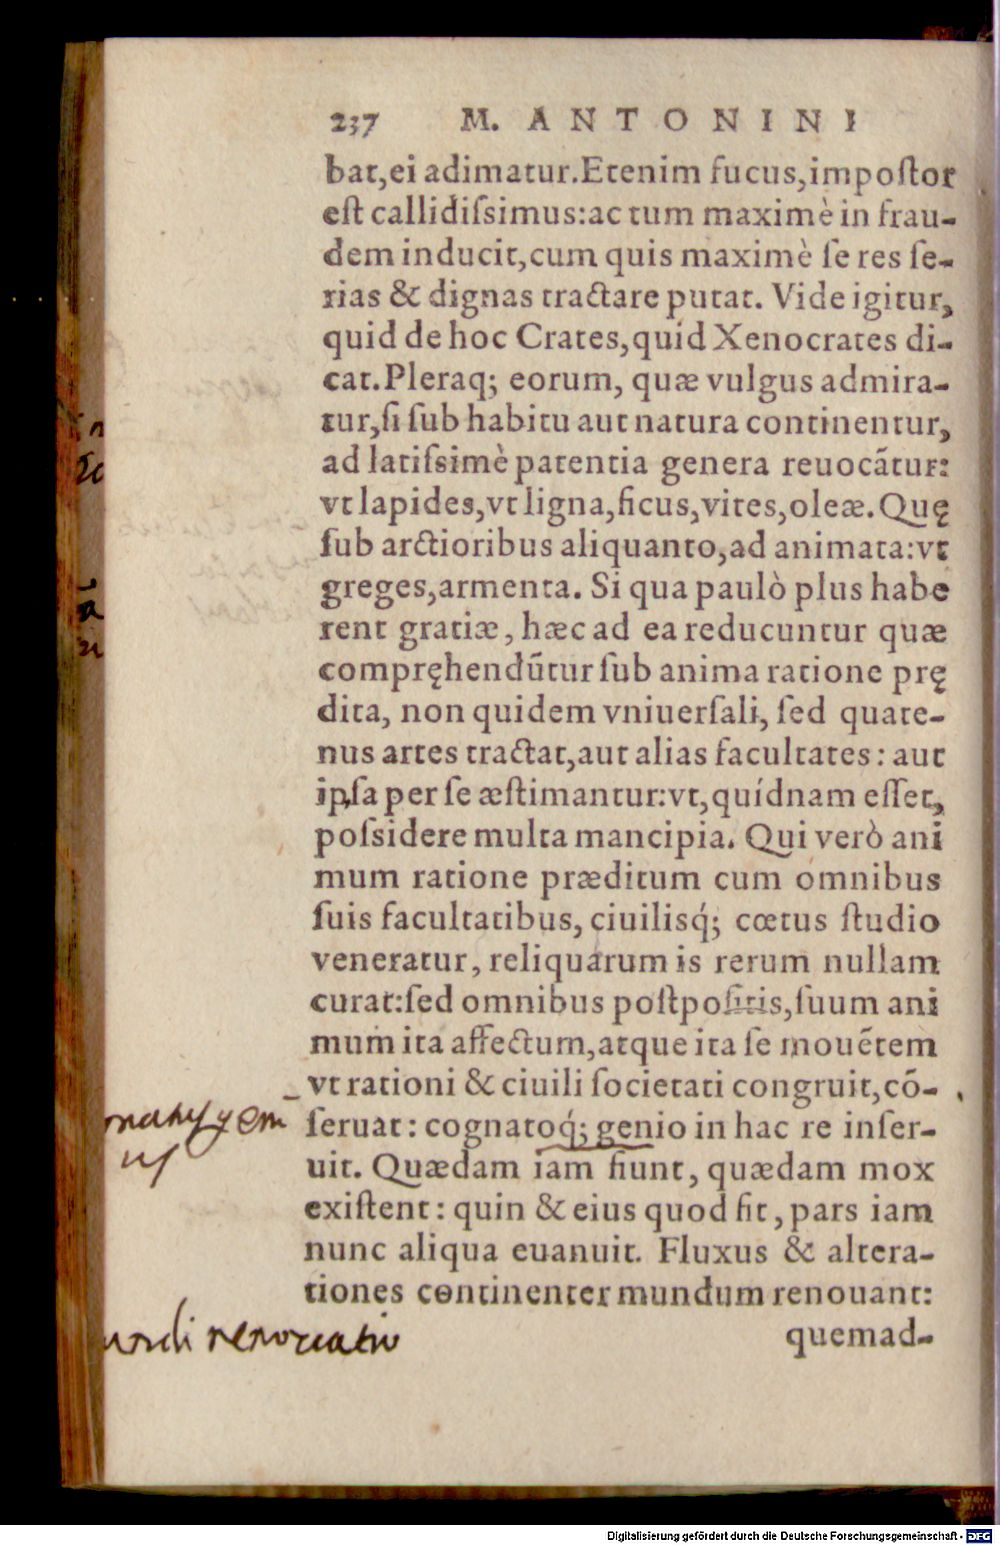 237 M. ANTONINI
bat,ei adimatur.Etenim fucus,impoſtor
eſt callidiſsimus:ac tum maximè in frau-
dem inducit,cum quis maximè ſe res ſe-
rias & dignas tractare putat. Vide igitur,
quid de hoc Crates,quid Xenocrates di-
cat.Pleraq; eorum, quæ vulgus admira-
tur,ſi ſub habitu aut natura continentur,
ad latiſsimè patentia genera reuocãtur:
vt lapides,vt ligna,ficus,vites,oleæ.Quę
ſub arctioribus aliquanto,ad animata:vt
greges,armenta. Si qua paulò plus habe
rent gratiæ, hæc ad ea reducuntur quæ
compręhendũtur ſub anima ratione prę
dita, non quidem vniuerſali, ſed quate-
nus artes tractat,aut alias facultates: aut
ipſa per ſe æſtimantur:vt,quídnam eſſet,
poſsidere multa mancipia. Qui verò ani
mum ratione præditum cum omnibus
ſuis facultatibus, ciuilisq́; cœtus ſtudio
veneratur, reliquarum is rerum nullam
curat:ſed omnibus poſtpoſitis,ſuum ani
mum ita affectum,atque ita ſe mouẽtem
vt rationi & ciuili ſocietati congruit,cõ-
ſeruat: cognatoq́; genio in hac re inſer-
uit. Quædam iam fiunt, quædam mox
exiſtent: quin & eius quod fit, pars iam
nunc aliqua euanuit. Fluxus & altera-
tiones continenter mundum renouant:
quemad-
renouatio
Digitalisierung gefördert durch die Deutsche Forschungsgemeinschaft - DFG